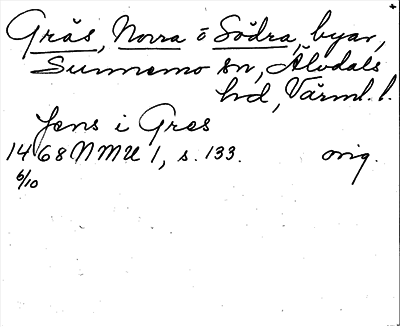 Grås, Norra o Södra, byar,
Sunnemo sn, Älvdals
hd, Värml. l.
Jens i Gres
1468 NMU 1, s. 133. orig.
6/10